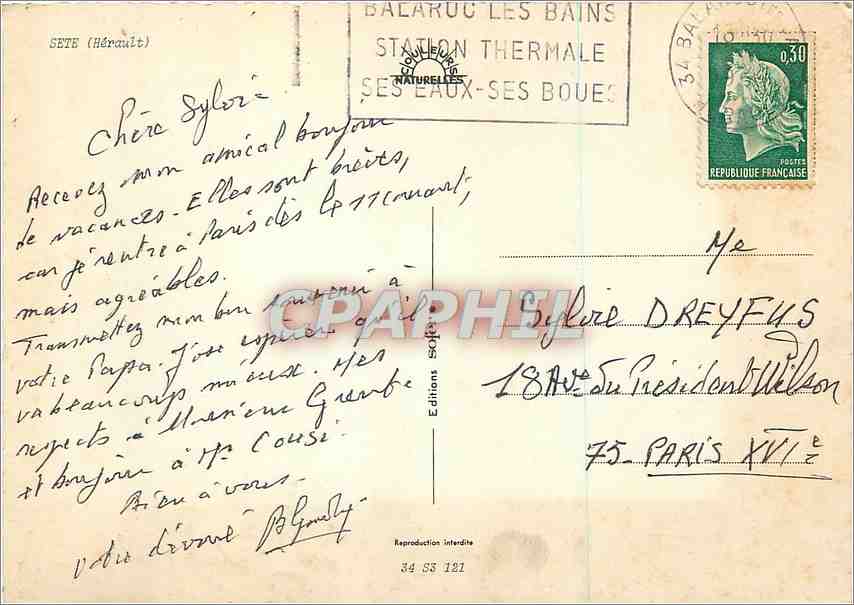 SETE (Hérault)
BALARUC LES BAINS
STATION THERMALE
SES EAUX-SES BOUES
COULEURS
NATURELLES
34 BALARUC
0,30
POSTES
REPUBLIQUE FRANÇAISE
Chère Sylvie
Recevez mon amical bonjour
de vacances. Elles sont brèves,
car je rentre à Paris dès le 11 courant,
mais agréables.
Transmettez mon bon souvenir à
votre Papa. J'ose espérer qu'il
va beaucoup mieux. Mes
respects à Monsieur
et bonjour à Me
Bien à vous.
Votre dévoué
CPAPHIL
Editions sofer
Me
Sylvie DREYFUS
18 Ave du Président Wilson
75-PARIS XVIe
Reproduction interdite
34 S3 121